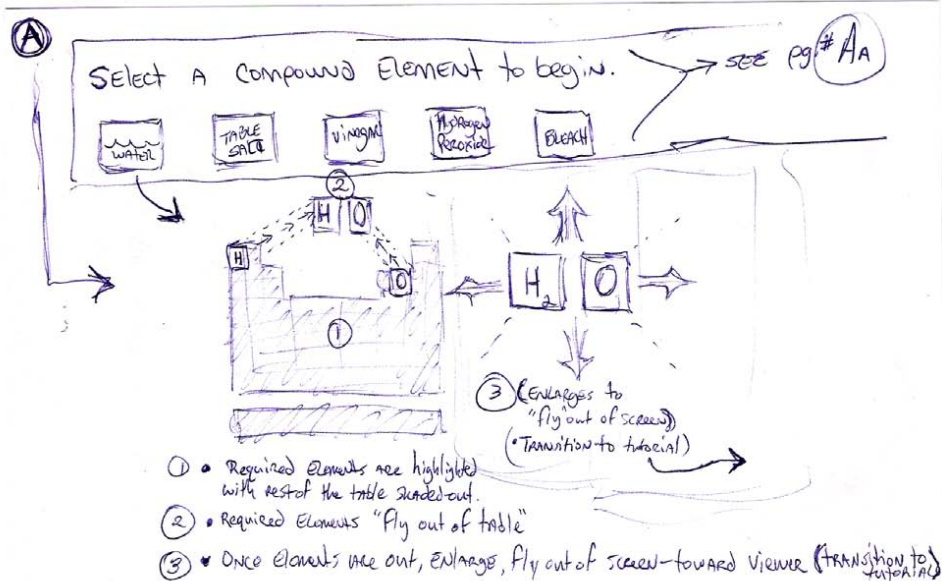 A
Select A Compound Element to begin.
SEE pg.# AA
WATER
TABLE
SALT
Vinegar
Hydrogen
Peroxide
BLEACH
2
H O
H
O
1
H2 O
3 (ENLARGES to
"fly" out of screen)
(• TRANSITION to tutorial)
1 • Required Elements are highlighted
with rest of the table shaded-out.
2 • Required Elements "Fly out of table"
3 • Once Elements are out, ENLARGE, fly out of screen-toward viewer (TRANSITION to
tutorial)